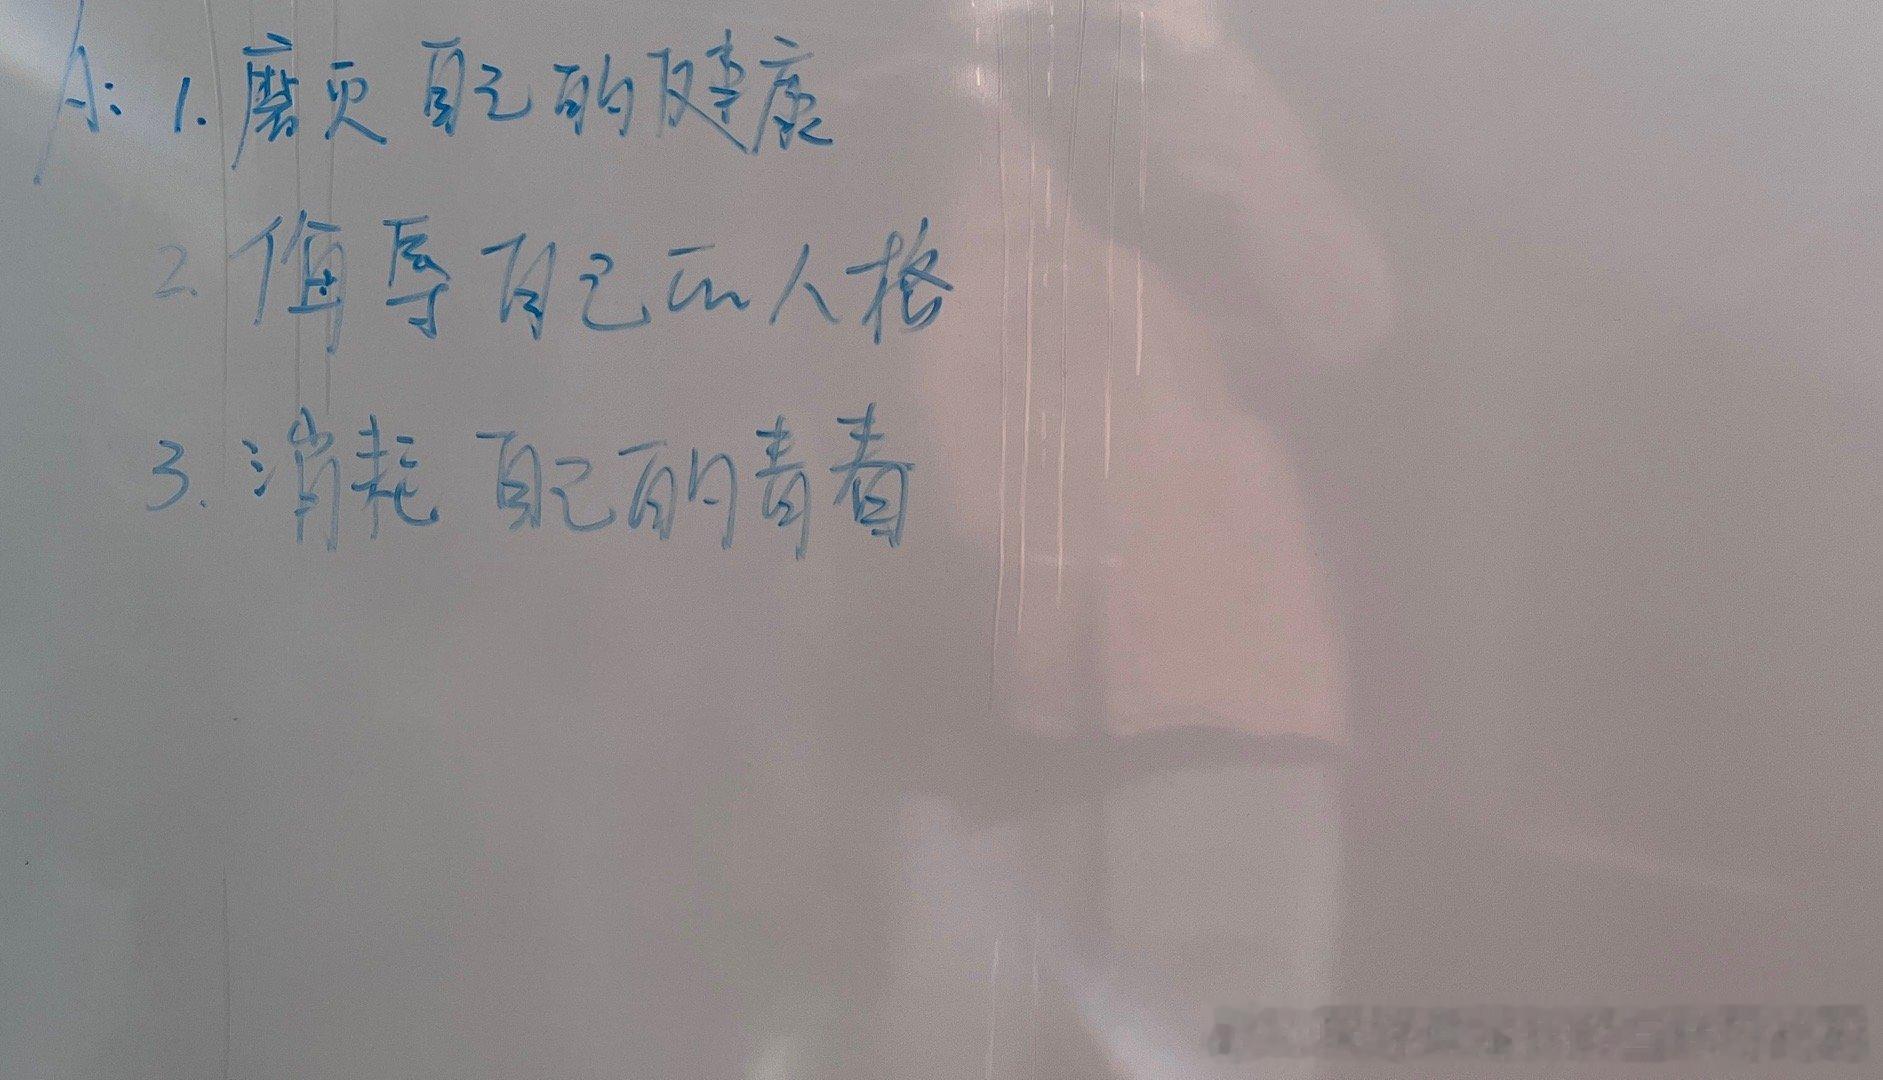 A: 1. 磨灭自己的健康
2. 侮辱自己的人格
3. 消耗自己的青春